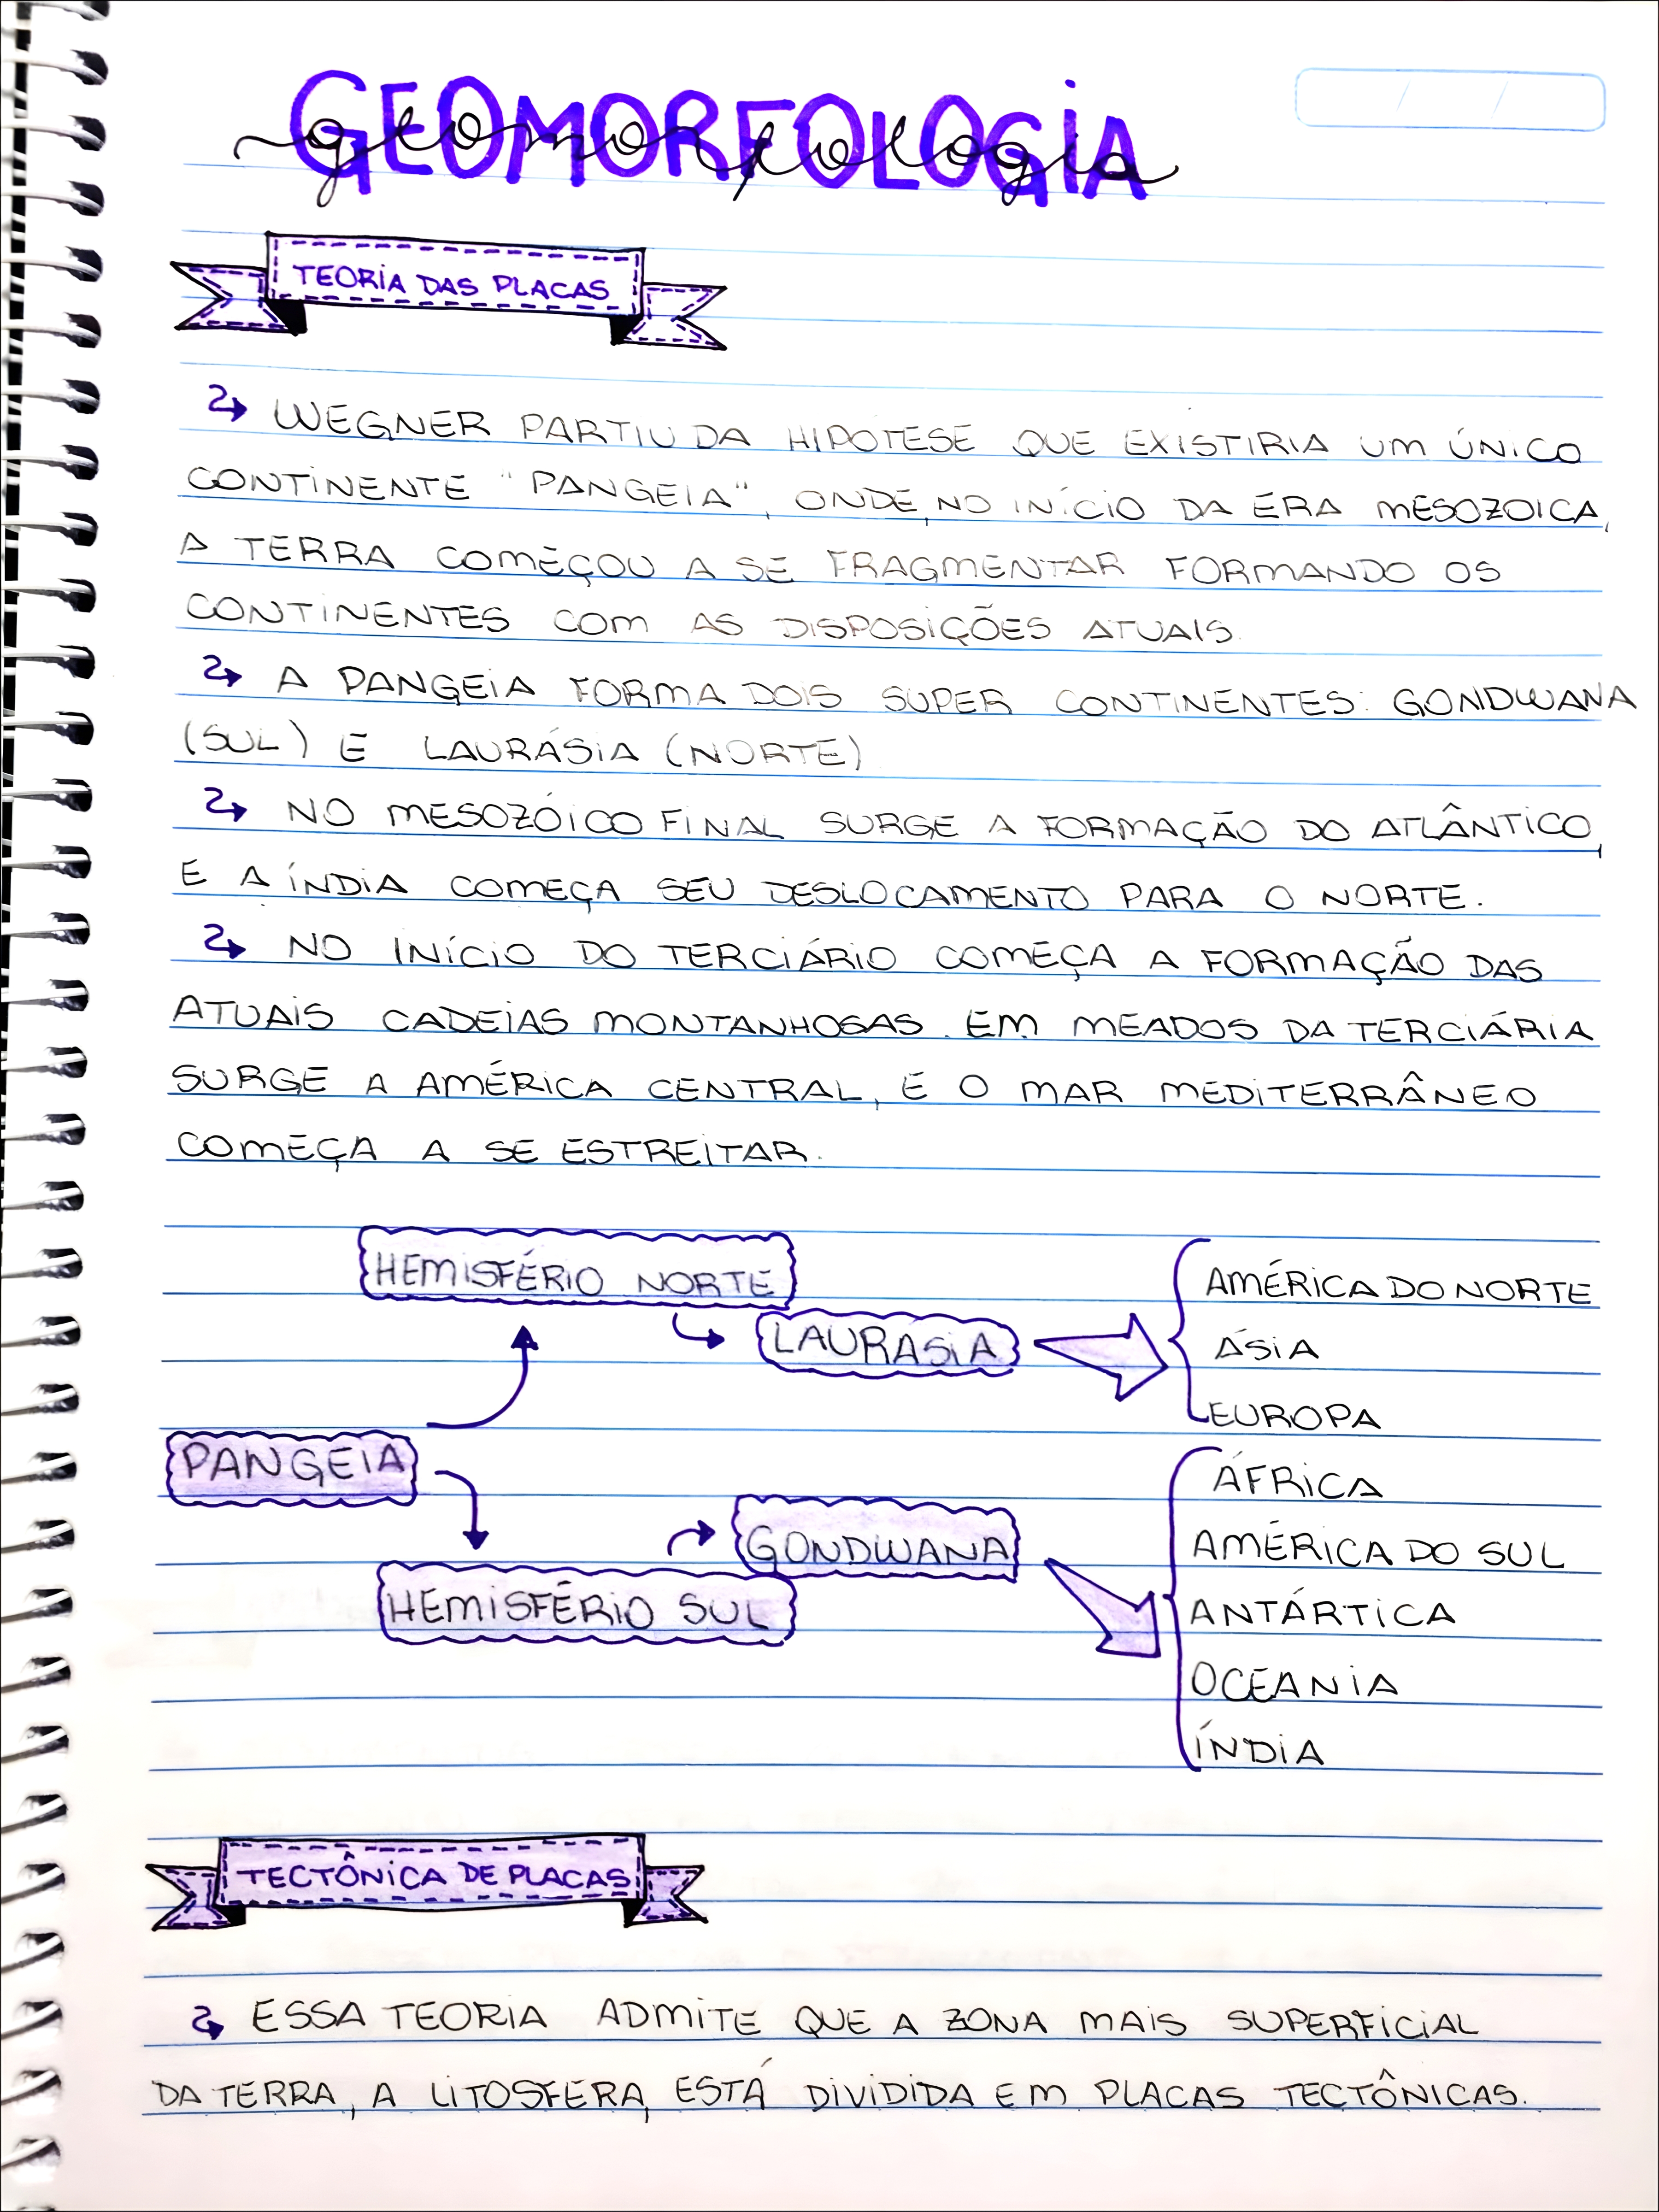 GEOMORFOLOGIA
geomorfologia
TEORIA DAS PLACAS
WEGNER PARTIU DA HIPÓTESE QUE EXISTIRIA UM ÚNICO
CONTINENTE "PANGEIA", ONDE, NO INÍCIO DA ERA MESOZOICA,
A TERRA COMEÇOU A SE FRAGMENTAR FORMANDO OS
CONTINENTES COM AS DISPOSIÇÕES ATUAIS.
A PANGEIA FORMA DOIS SUPER CONTINENTES: GONDWANA
(SUL) E LAURÁSIA (NORTE)
NO MESOZÓICO FINAL SURGE A FORMAÇÃO DO ATLÂNTICO,
E A ÍNDIA COMEÇA SEU DESLOCAMENTO PARA O NORTE.
NO INÍCIO DO TERCIÁRIO COMEÇA A FORMAÇÃO DAS
ATUAIS CADEIAS MONTANHOSAS. EM MEADOS DA TERCIÁRIA
SURGE A AMÉRICA CENTRAL, E O MAR MEDITERRÂNEO
COMEÇA A SE ESTREITAR.
HEMISFÉRIO NORTE
LAURÁSIA
AMÉRICA DO NORTE
ÁSIA
EUROPA
PANGEIA
HEMISFÉRIO SUL
GONDWANA
ÁFRICA
AMÉRICA DO SUL
ANTÁRTICA
OCEANIA
ÍNDIA
TECTÔNICA DE PLACAS
ESSA TEORIA ADMITE QUE A ZONA MAIS SUPERFICIAL
DA TERRA, A LITOSFERA, ESTÁ DIVIDIDA EM PLACAS TECTÔNICAS.